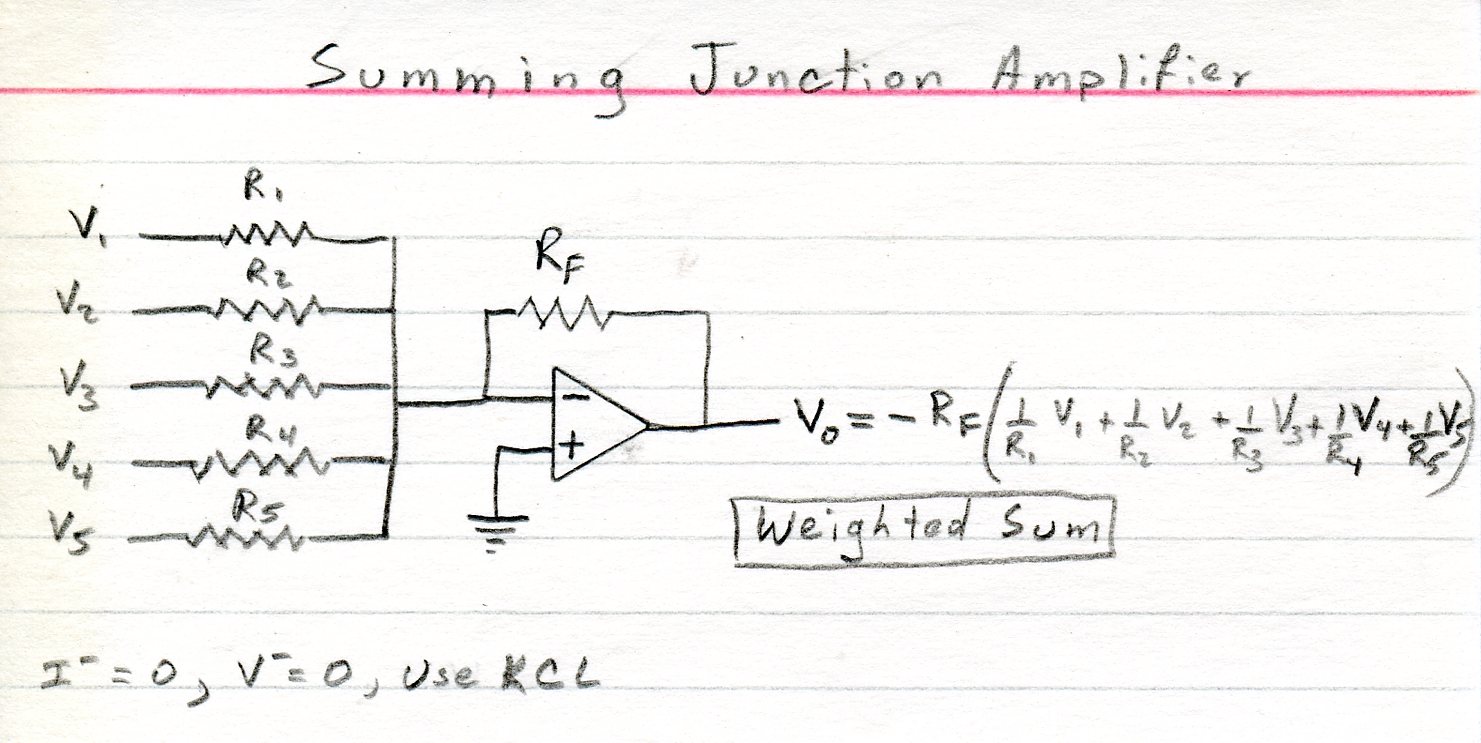 Summing Junction Amplifier
R₁
V₁
R₂
V₂
R₃
V₃
R₄
V₄
R₅
V₅
R_F
−
+
V₀ = − R_F ( 1/R₁ V₁ + 1/R₂ V₂ + 1/R₃ V₃ + 1/R₄ V₄ + 1/R₅ V₅ )
Weighted Sum
I⁻ = 0, V⁻ = 0, Use KCL